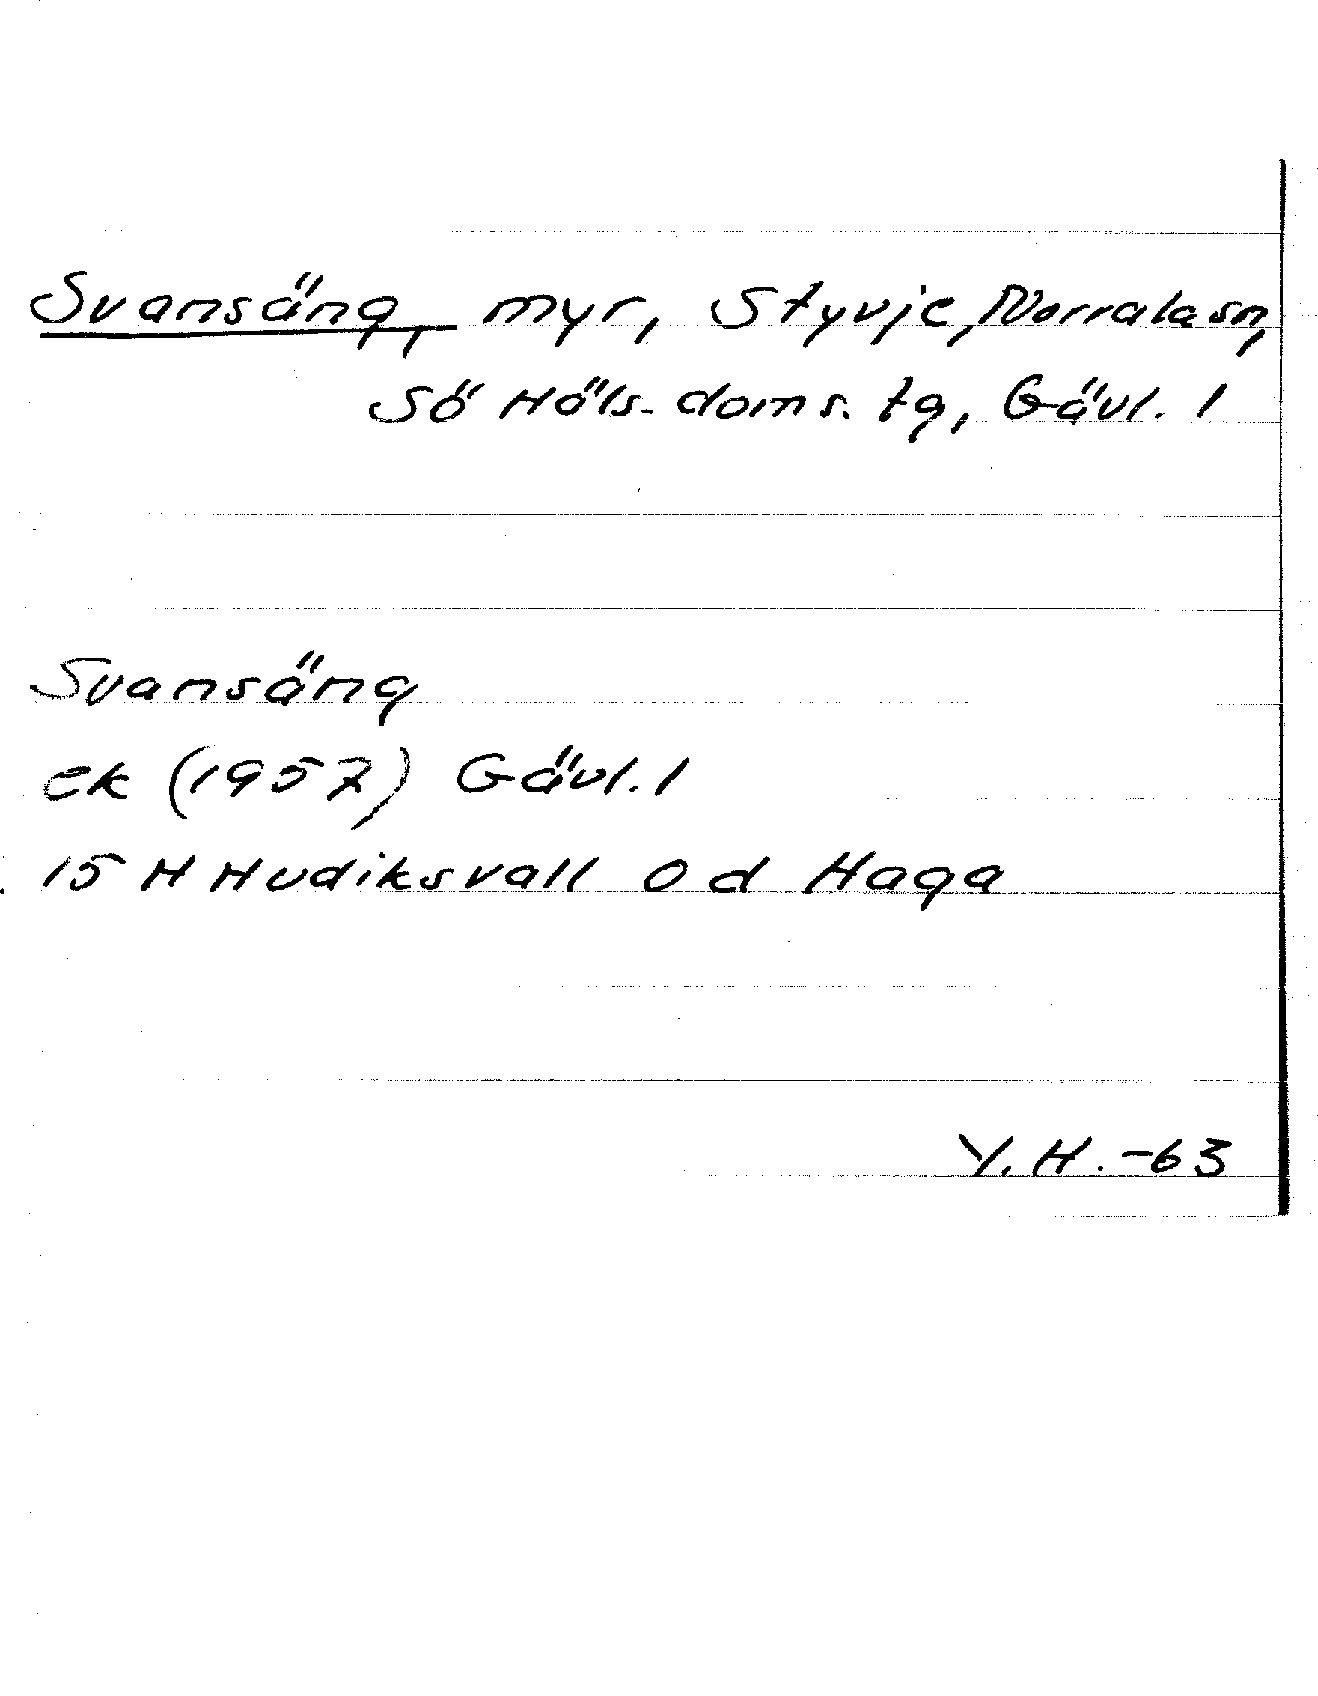 Svansäng, myr, Styvje, Norrala sn,
Sö Häls. doms. tg, Gävl. l
Svansäng
ek (1957) Gävl. l
15 H Hudiksvall 0 d Haga
Y. H. -63